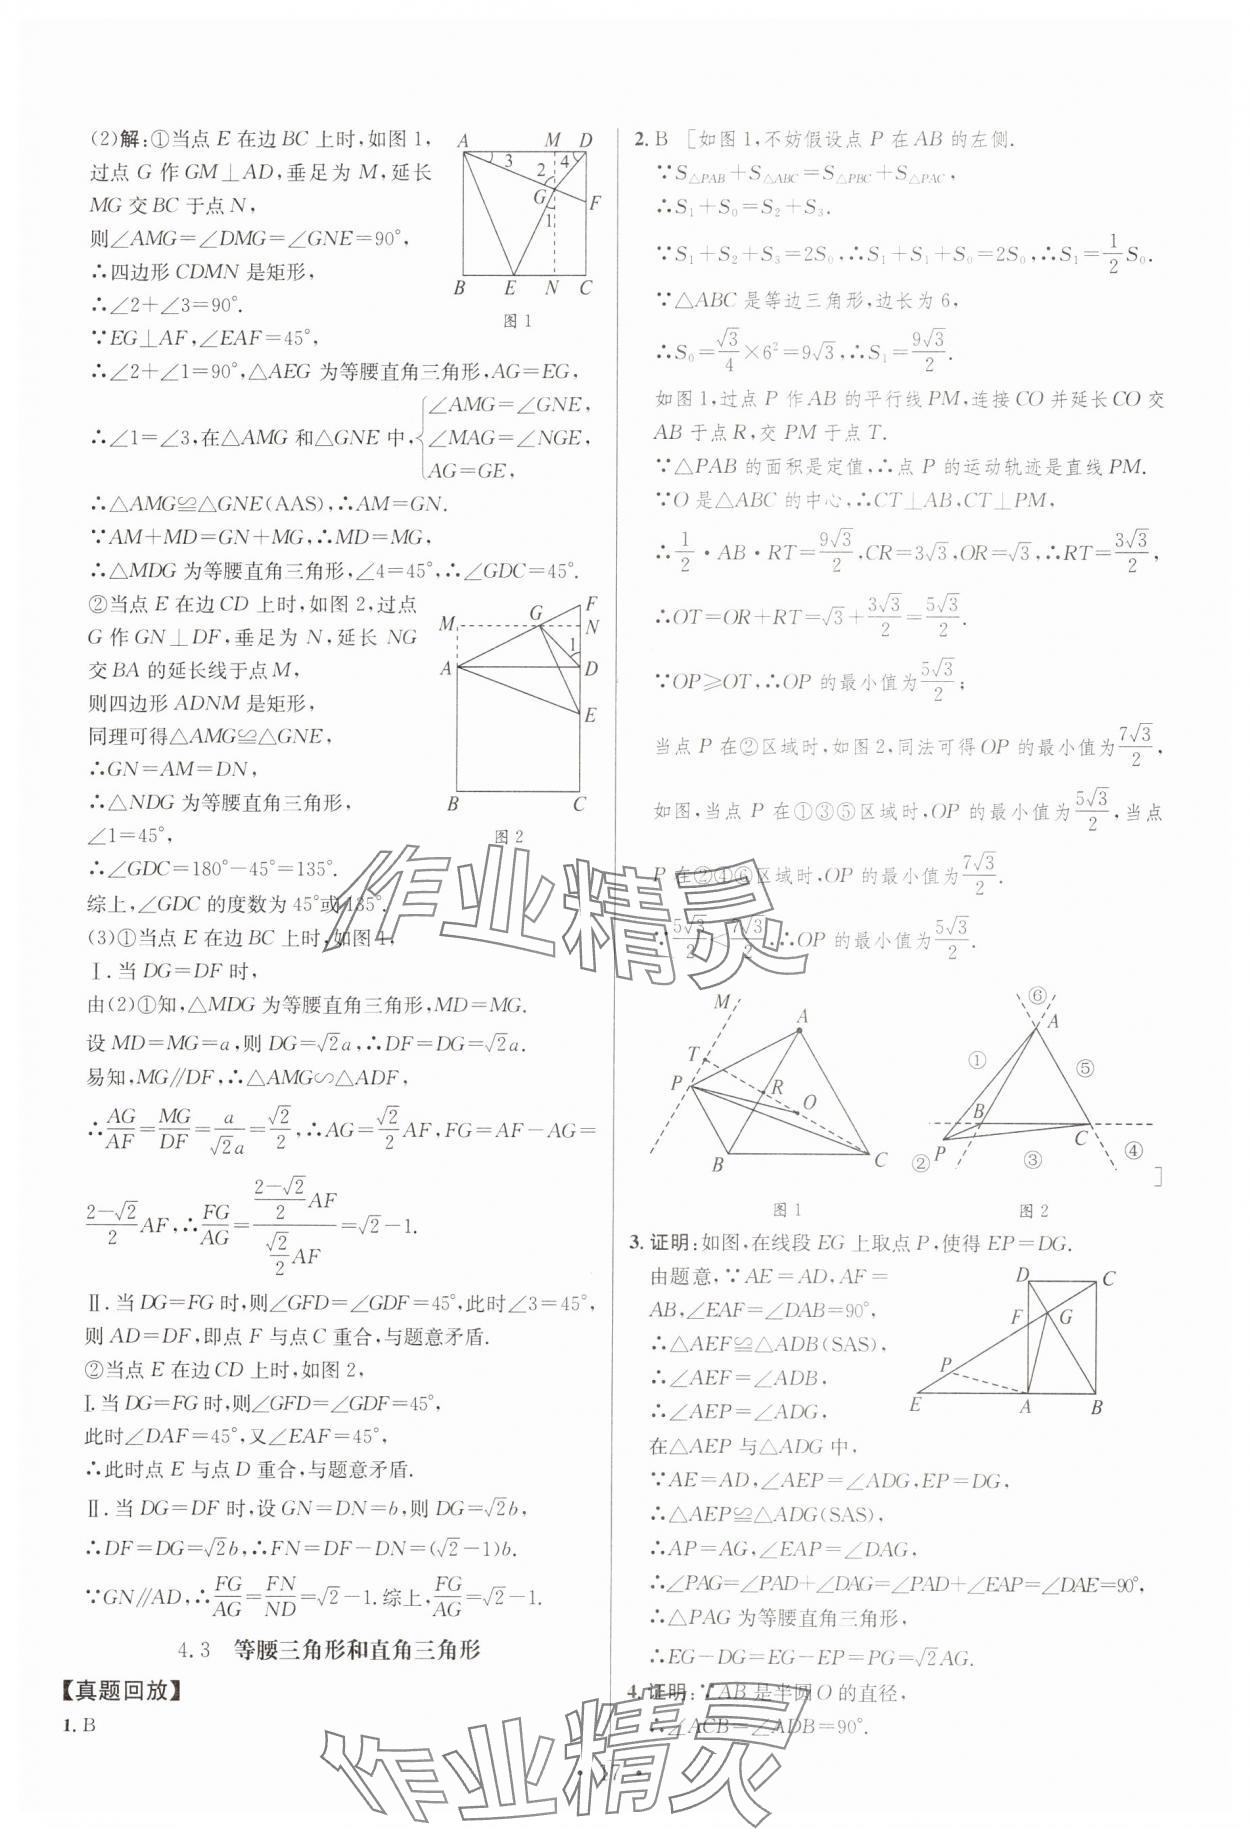 (2)解:①当点 E 在边 BC 上时,如图 1,
过点 G 作 GM⊥AD,垂足为 M,延长
MG 交 BC 于点 N,
则∠AMG=∠DMG=∠GNE=90°,
∴四边形 CDMN 是矩形,
∴∠2+∠3=90°.
∵EG⊥AF,∠EAF=45°,
∴∠2+∠1=90°,△AEG 为等腰直角三角形,AG=EG,
∴∠1=∠3,在△AMG 和△GNE 中,{∠AMG=∠GNE,
∠MAG=∠NGE,
AG=GE,
∴△AMG≌△GNE(AAS),∴AM=GN.
∵AM+MD=GN+MG,∴MD=MG,
∴△MDG 为等腰直角三角形,∠4=45°,∴∠GDC=45°.
A M D
3 2 4
G F
1
B E N C
图 1
②当点 E 在边 CD 上时,如图 2,过点
G 作 GN⊥DF,垂足为 N,延长 NG
交 BA 的延长线于点 M,
则四边形 ADNM 是矩形,
同理可得△AMG≌△GNE,
∴GN=AM=DN,
∴△NDG 为等腰直角三角形,
∠1=45°,
∴∠GDC=180°-45°=135°.
综上,∠GDC 的度数为 45°或 135°.
G F
M N
1
A D
E
B C
图 2
(3)①当点 E 在边 BC 上时,如图 1,
Ⅰ.当 DG=DF 时,
由(2)①知,△MDG 为等腰直角三角形,MD=MG.
设 MD=MG=a,则 DG=√2a,∴DF=DG=√2a.
易知,MG∥DF,∴△AMG∽△ADF,
∴AG/AF=MG/DF=a/(√2a)=√2/2,∴AG=√2/2 AF,FG=AF-AG=
(2-√2)/2 AF,∴FG/AG=((2-√2)/2 AF)/(√2/2 AF)=√2-1.
Ⅱ.当 DG=FG 时,则∠GFD=∠GDF=45°,此时∠3=45°,
则 AD=DF,即点 F 与点 C 重合,与题意矛盾.
②当点 E 在边 CD 上时,如图 2,
Ⅰ.当 DG=FG 时,则∠GFD=∠GDF=45°,
此时∠DAF=45°,又∠EAF=45°,
∴此时点 E 与点 D 重合,与题意矛盾.
Ⅱ.当 DG=DF 时,设 GN=DN=b,则 DG=√2b,
∴DF=DG=√2b,∴FN=DF-DN=(√2-1)b.
∵GN∥AD,∴FG/AG=FN/ND=√2-1.综上,FG/AG=√2-1.
4.3 等腰三角形和直角三角形
【真题回放】
1.B
2.B [如图 1,不妨假设点 P 在 AB 的左侧.
∵S△PAB+S△ABC=S△PBC+S△PAC,
∴S₁+S₀=S₂+S₃.
∵S₁+S₂+S₃=2S₀,∴S₁+S₁+S₀=2S₀,∴S₁=1/2 S₀.
∵△ABC 是等边三角形,边长为 6,
∴S₀=√3/4×6²=9√3,∴S₁=9√3/2.
如图 1,过点 P 作 AB 的平行线 PM,连接 CO 并延长 CO 交
AB 于点 R,交 PM 于点 T.
∵△PAB 的面积是定值,∴点 P 的运动轨迹是直线 PM.
∵O 是△ABC 的中心,∴CT⊥AB,CT⊥PM,
∴1/2·AB·RT=9√3/2,CR=3√3,OR=√3,∴RT=3√3/2,
∴OT=OR+RT=√3+3√3/2=5√3/2.
∵OP≥OT,∴OP 的最小值为5√3/2;
当点 P 在②区域时,如图 2,同法可得 OP 的最小值为7√3/2,
如图,当点 P 在①③⑤区域时,OP 的最小值为5√3/2,当点
P 在②④⑥区域时,OP 的最小值为7√3/2.
∵5√3/2<7√3/2,∴OP 的最小值为5√3/2.
M A
T
P R
O
B C
图 1
⑥
A
① ⑤
B
C
② P ③ ④
图 2
]
3.证明:如图,在线段 EG 上取点 P,使得 EP=DG.
由题意,∵AE=AD,AF=
AB,∠EAF=∠DAB=90°,
∴△AEF≌△ADB(SAS),
∴∠AEF=∠ADB,
∴∠AEP=∠ADG.
在△AEP 与△ADG 中,
∵AE=AD,∠AEP=∠ADG,EP=DG,
∴△AEP≌△ADG(SAS),
∴AP=AG,∠EAP=∠DAG,
∴∠PAG=∠PAD+∠DAG=∠PAD+∠EAP=∠DAE=90°,
∴△PAG 为等腰直角三角形,
∴EG-DG=EG-EP=PG=√2AG.
D C
F G
P
E A B
4.证明:∵AB 是半圆 O 的直径,
∴∠ACB=∠ADB=90°.
·17·
作业精灵
作业精灵